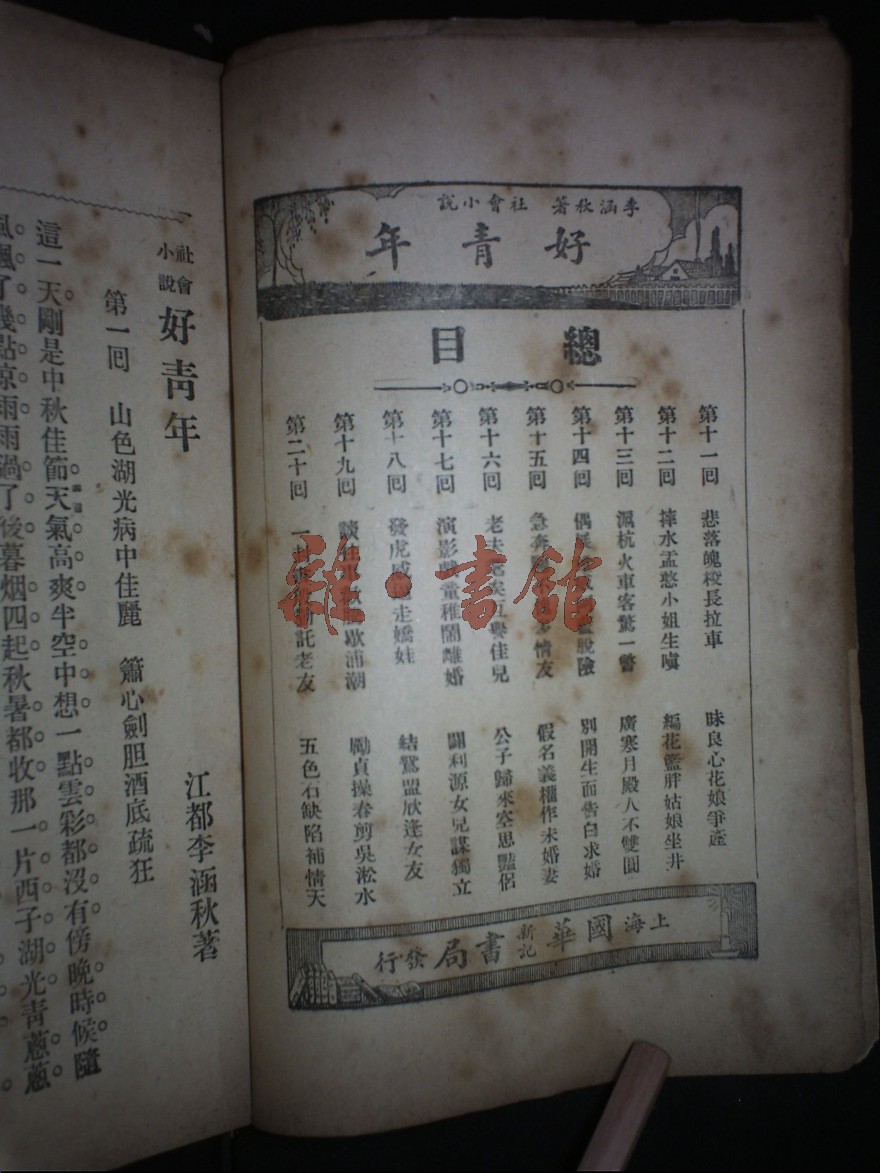 李涵秋著 社會小說
好青年
總目
第十一回 悲落魄校長拉車 昧良心花娘爭產
第十二回 摔水盂憨小姐生嗔 編花籃胖姑娘坐井
第十三回 滬杭火車客驚一瞥 廣寒月殿人不雙圓
第十四回 偶 脫險 別開生面告白求婚
第十五回 急奔 情友 假名義權作未婚妻
第十六回 老夫 譽佳兒 公子歸來空思豔侶
第十七回 演影戲童稚鬧離婚 闢利源女兒謀獨立
第十八回 發虎威 走嬌娃 結鴛盟欣逢女友
第十九回 談 歇浦潮 勵貞操春剪吳淞水
第二十回 一封 託老友 五色石缺陷補情天
上海國華新記書局發行
社會小說 好青年
江都李涵秋著
第一回 山色湖光病中佳麗 簫心劍胆酒底疏狂
這一天剛是中秋佳節天氣高爽半空中想一點雲彩都沒有傍晚時候隨
風飄了幾點凉雨雨過了後暮烟四起秋暑都收那一片西子湖光青蔥蔥
雜·書館